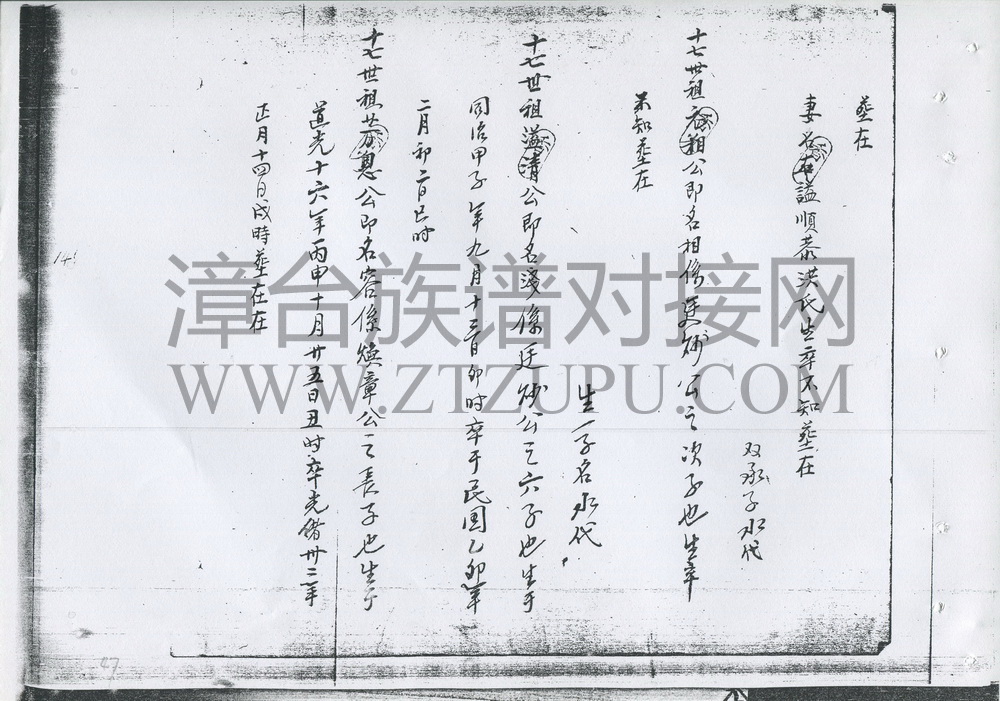 葬在
妻名 謚順恭洪氏生卒不知葬在
双承子水代
十七世祖 公即名相係廷炒公之次子也生卒
不知葬在
生一子名水代
十七世祖溢清公即名 係廷炒公之六子也生于
同治甲子年九月十三日卯时卒于民国乙卯年
二月初二日巳时
十七世祖 公即名容係焕章公之長子也生于
道光十六年丙申十月廿五日丑时卒光緒卅二年
正月十四日戌時葬在在
漳台族谱对接网
WWW.ZTZUPU.COM
27